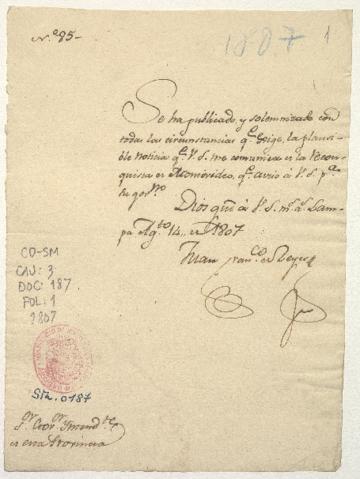 N.º 85-
1807 1
Se ha publicado, y solemnizado con
todas las circunstancias q.e exige, la plausi-
ble noticia q.e V.S. me comunica de la recon-
quista de Montevideo, q.e aviso à V.S. p.a
su gov.no
Dios gu.e à V.S. m.s a.s Lam-
pa Ag.to 14,, de 1807
Juan Fran.co de Reyes
CD-SM
CAJ: 3
DOC: 187
FOL: 1
1807
Sta. 0187
S.or Gov.or Yntend.te
de esta Provincia